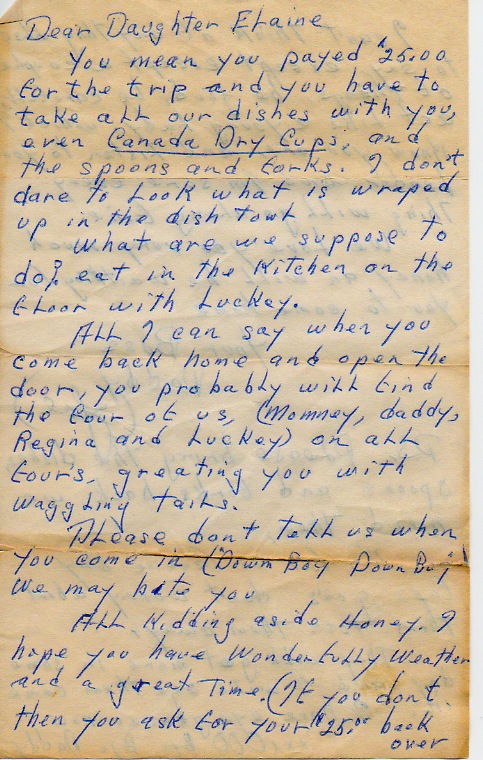 Dear Daughter Elaine
You mean you payed $25.00
for the trip and you have to
take all our dishes with you,
even Canada Dry Cups, and
the spoons and forks. I don't
dare to look what is wraped
up in the dish towl
What are we suppose to
do? eat in the Kitchen on the
floor with Luckey.
All I can say when you
come back home and open the
door, you probably will find
the four of us, (Mommey, daddy,
Regina and Luckey) on all
fours, greating you with
waggling tails.
Please don't tell us when
you come in ("Down Boy Down Boy"
We may bite you
All Kidding aside Honey. I
hope you have wonderfully weather
and a great Time. (If you don't
then you ask for your $25.00 back
over